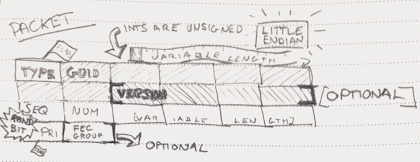 PACKET
INTS ARE UNSIGNED
LITTLE ENDIAN
VARIABLE LENGTH
TYPE GUID
VERSION
[OPTIONAL]
SEQ NUM
[VAR IABLE LEN GTH]
AND BIT PRI FEC GROUP
OPTIONAL